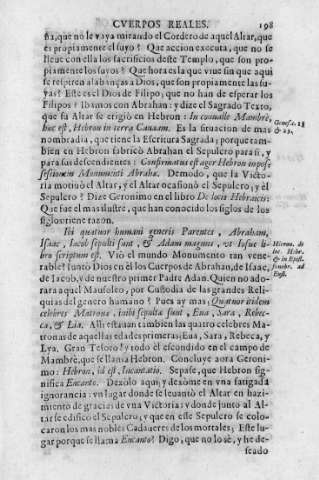 CVERPOS REALES. 198
sia, que no le vaya mirando el Cordero de aquel Altar, que
es propiamente el suyo? Que accion executa, que no se
lleue con ella los sacrificios deste Templo, que son pro-
piamente los suyos? Que hora es la que viue sin que aqui
se respiren alabanças a Dios, que son propiamente las su-
yas? Este es el Dios de Filipo, que no han de esperar los
Filipos? Ibamos con Abrahan: y dize el Sagrado Texto,
que su Altar se erigiò en Hebron: In conualle Mambrè,
huc est, Hebron in terra Canaam. Es la situacion de mas
nombradia, que tiene la Escritura Sagrada; porque tam-
bien en Hebron fabricò Abrahan el Sepulcro para si, y
para sus descendientes: Confirmatus est ager Hebron in posse
sessionem Monumenti Abrahæ. Demodo, que la Victo-
ria motiuò el Altar, y el Altar ocasionò el Sepulcro; y el
Sepulcro? Dize Geronimo en el libro De locis Hebraicis:
Que fue el mas ilustre, que han conocido los siglos de los
siglos: tiene razon.
Genes. c. 18
& 23.
Ibi quatuor humani generis Parentes, Abraham,
Isaac, Iacob sepulti sunt, & Adam magnus, vt Iosue li-
bro scriptum est. Viò el mundo Monumento tan vene-
rable? Iuntò Dios en èl los Cuerpos de Abrahan, de Isaac,
de Iacob, y de nuestro primer Padre Adan. Quien no do-
rara aquel Mausoleo, por Custodia de las grandes Reli-
quias del genero humano? Pues ay mas; Quatuor itidem
celebres Matronæ, inibi sepultæ sunt, Eua, Sara, Rebec-
ca, & Lia. Alli estauan tambien las quatro celebres Ma-
tronas de aquellas edades primeras; Eua, Sara, Rebeca, y
Lya. Gran Tesoro! y todo èl escondido en el campo de
Mambrè, que se llama Hebron. Concluye aora Geroni-
mo: Hebron, id est, Incantatio. Sepase, que Hebron sig-
nifica Encanto. Dexolo aqui; y dexòme en vna fatigada
ignorancia: vn lugar donde se leuantò el Altar en hazi-
miento de gracias de vna Victoria: vn donde junto al Al-
tar se edificò el Sepulcro; y que en este Sepulcro se colo-
caron los mas nobles Cadaueres de los mortales; Este lu-
gar porque se llama Encanto? Digo, que no lo sè, y he de-
seado
Hieron. de
loc. Hebr.
& in Epist.